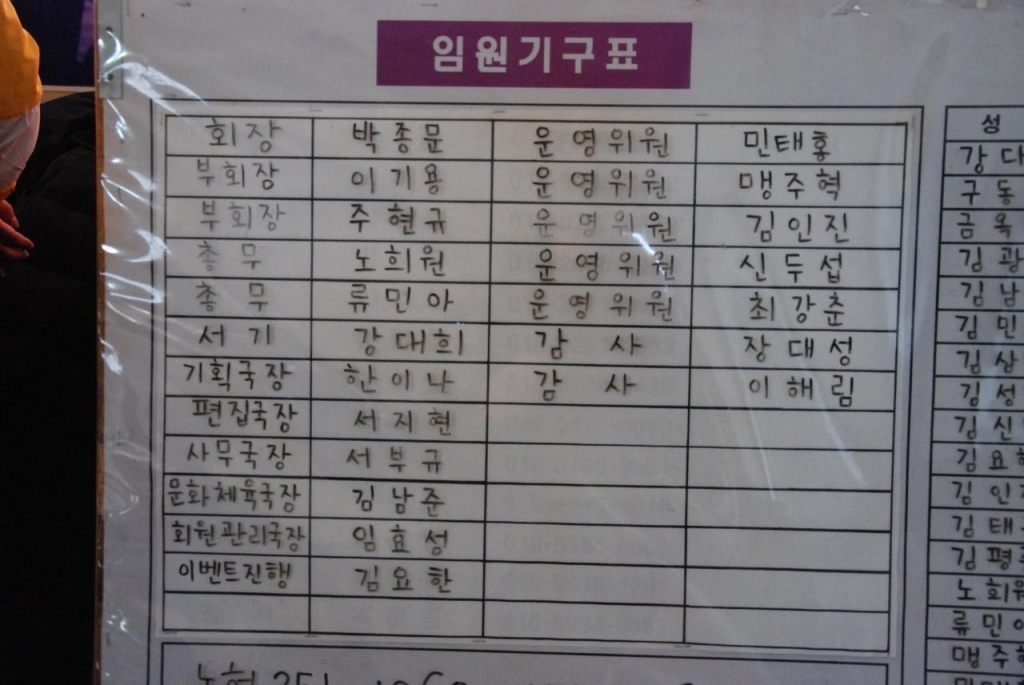 임원기구표
회장 박종문 운영위원 민태홍
부회장 이기용 운영위원 맹주혁
부회장 주현규 운영위원 김인진
총무 노희원 운영위원 신두섭
총무 류민아 운영위원 최강춘
서기 강대희 감사 장대성
기획국장 한이나 감사 이해림
편집국장 서지현
사무국장 서부규
문화체육국장 김남준
회원관리국장 임효성
이벤트진행 김요한
성
강대
구동
금옥
김광
김남
김민
김상
김성
김신
김요
김인
김태
김평
노희원
류민아
맹주혁